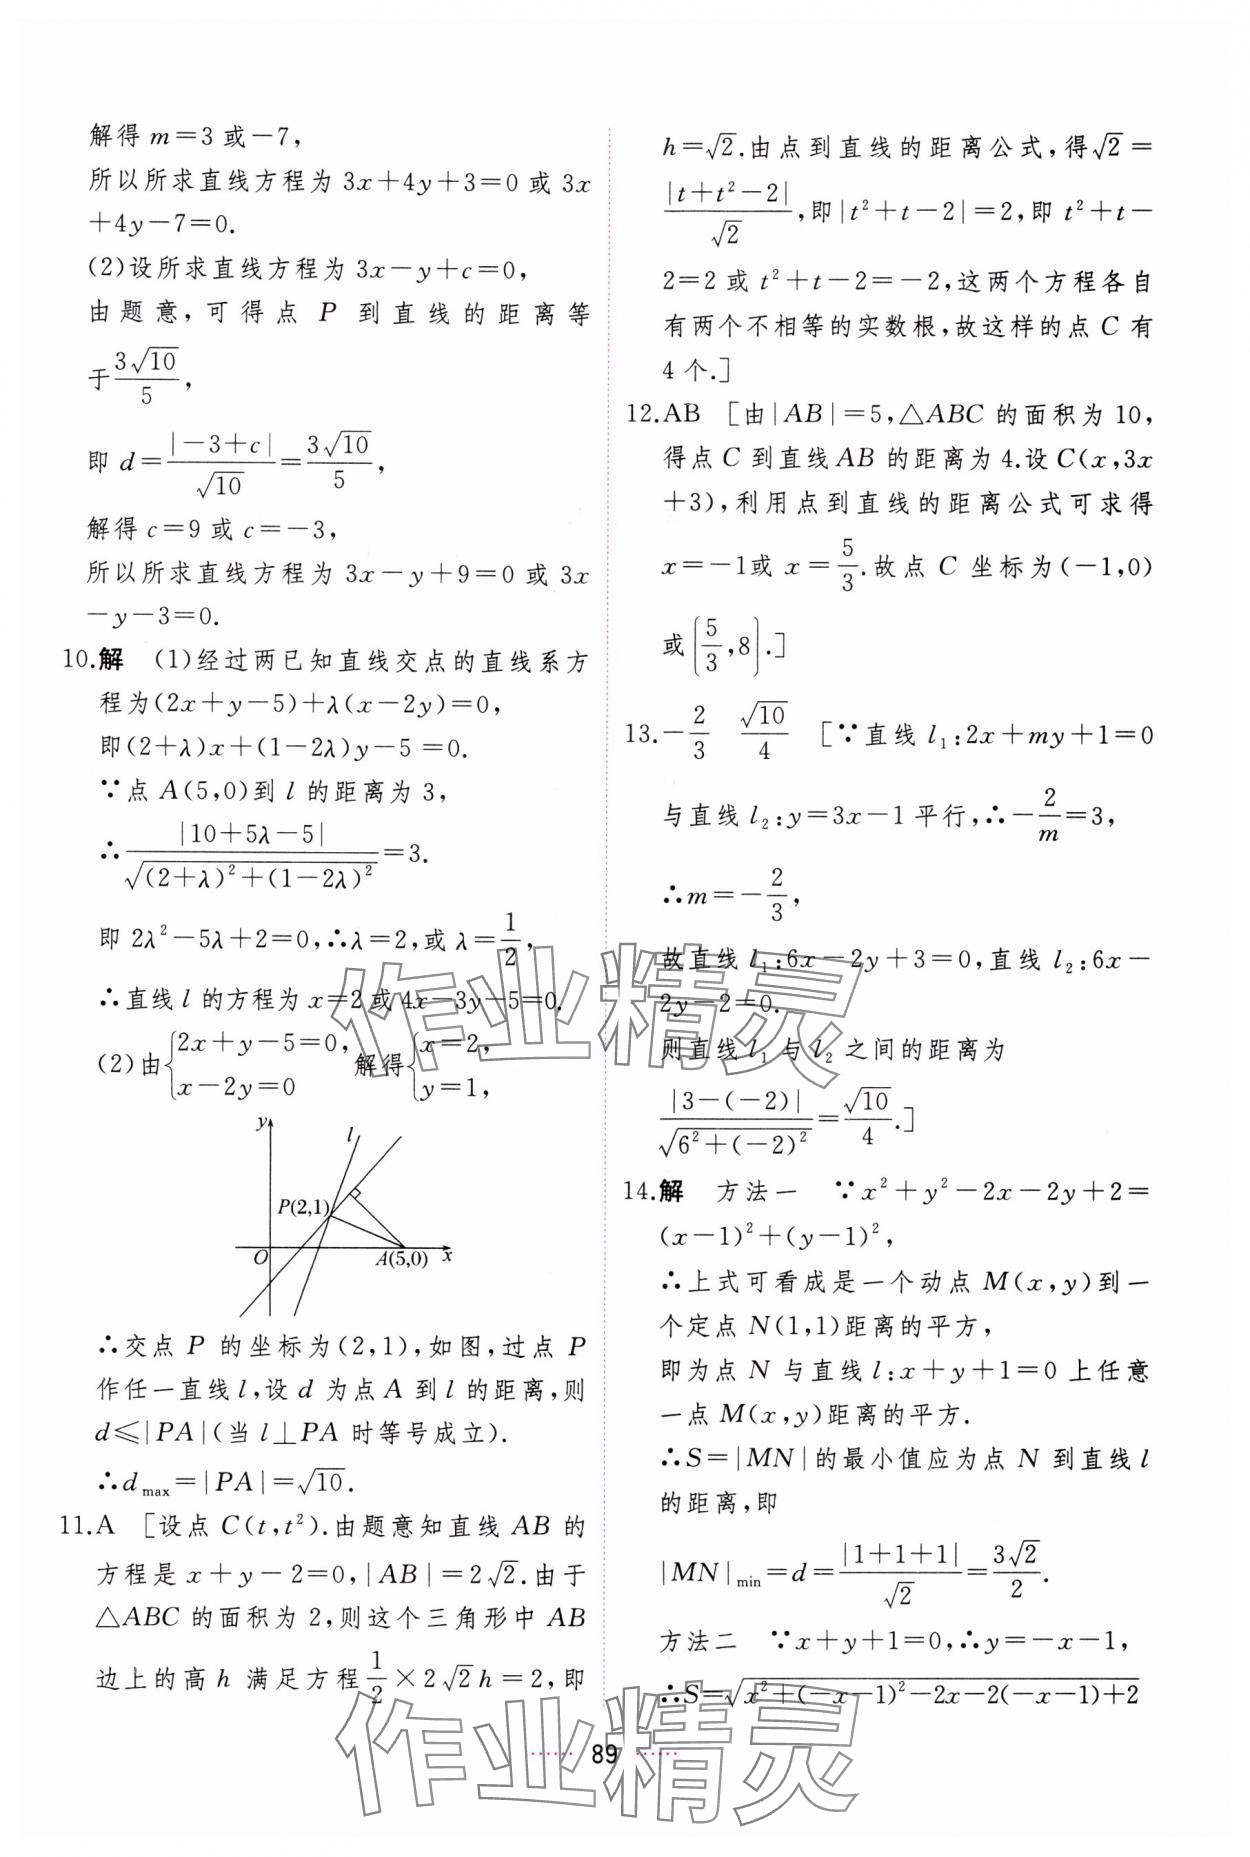 解得 m=3 或-7,
所以所求直线方程为 3x+4y+3=0 或 3x
+4y-7=0.
(2)设所求直线方程为 3x-y+c=0,
由题意,可得点 P 到直线的距离等
于3√10/5,
即 d=|-3+c|/√10=3√10/5,
解得 c=9 或 c=-3,
所以所求直线方程为 3x-y+9=0 或 3x
-y-3=0.
10.解 (1)经过两已知直线交点的直线系方
程为(2x+y-5)+λ(x-2y)=0,
即(2+λ)x+(1-2λ)y-5 =0.
∵点 A(5,0)到 l 的距离为 3,
∴|10+5λ-5|/√((2+λ)²+(1-2λ)²)=3.
即 2λ²-5λ+2=0,∴λ=2,或 λ=1/2,
∴直线 l 的方程为 x=2 或 4x-3y-5=0.
(2)由{2x+y-5=0, x-2y=0 解得{x=2, y=1,
y
l
P(2,1)
O
A(5,0)
x
∴交点 P 的坐标为(2,1),如图,过点 P
作任一直线 l,设 d 为点 A 到 l 的距离,则
d≤|PA|(当 l⊥PA 时等号成立).
∴d max=|PA|=√10.
11.A [设点 C(t,t²).由题意知直线 AB 的
方程是 x+y-2=0,|AB|=2√2.由于
△ABC 的面积为 2,则这个三角形中 AB
边上的高 h 满足方程1/2×2√2h=2,即
h=√2.由点到直线的距离公式,得√2=
|t+t²-2|/√2,即|t²+t-2|=2,即 t²+t-
2=2 或 t²+t-2=-2,这两个方程各自
有两个不相等的实数根,故这样的点 C 有
4 个.]
12.AB [由|AB|=5,△ABC 的面积为 10,
得点 C 到直线 AB 的距离为 4.设 C(x,3x
+3),利用点到直线的距离公式可求得
x=-1或 x=5/3.故点 C 坐标为(-1,0)
或(5/3,8).]
13.-2/3 √10/4 [∵直线 l₁:2x+my+1=0
与直线 l₂:y=3x-1 平行,∴-2/m=3,
∴m=-2/3,
故直线 l₁:6x-2y+3=0,直线 l₂:6x-
2y-2=0.
则直线 l₁ 与 l₂ 之间的距离为
|3-(-2)|/√(6²+(-2)²)=√10/4.]
14.解 方法一 ∵x²+y²-2x-2y+2=
(x-1)²+(y-1)²,
∴上式可看成是一个动点 M(x,y)到一
个定点 N(1,1)距离的平方,
即为点 N 与直线 l:x+y+1=0 上任意
一点 M(x,y)距离的平方.
∴S=|MN|的最小值应为点 N 到直线 l
的距离,即
|MN|min=d=|1+1+1|/√2=3√2/2.
方法二 ∵x+y+1=0,∴y=-x-1,
∴S=√(x²+(-x-1)²-2x-2(-x-1)+2)
89
作业精灵
作业精灵